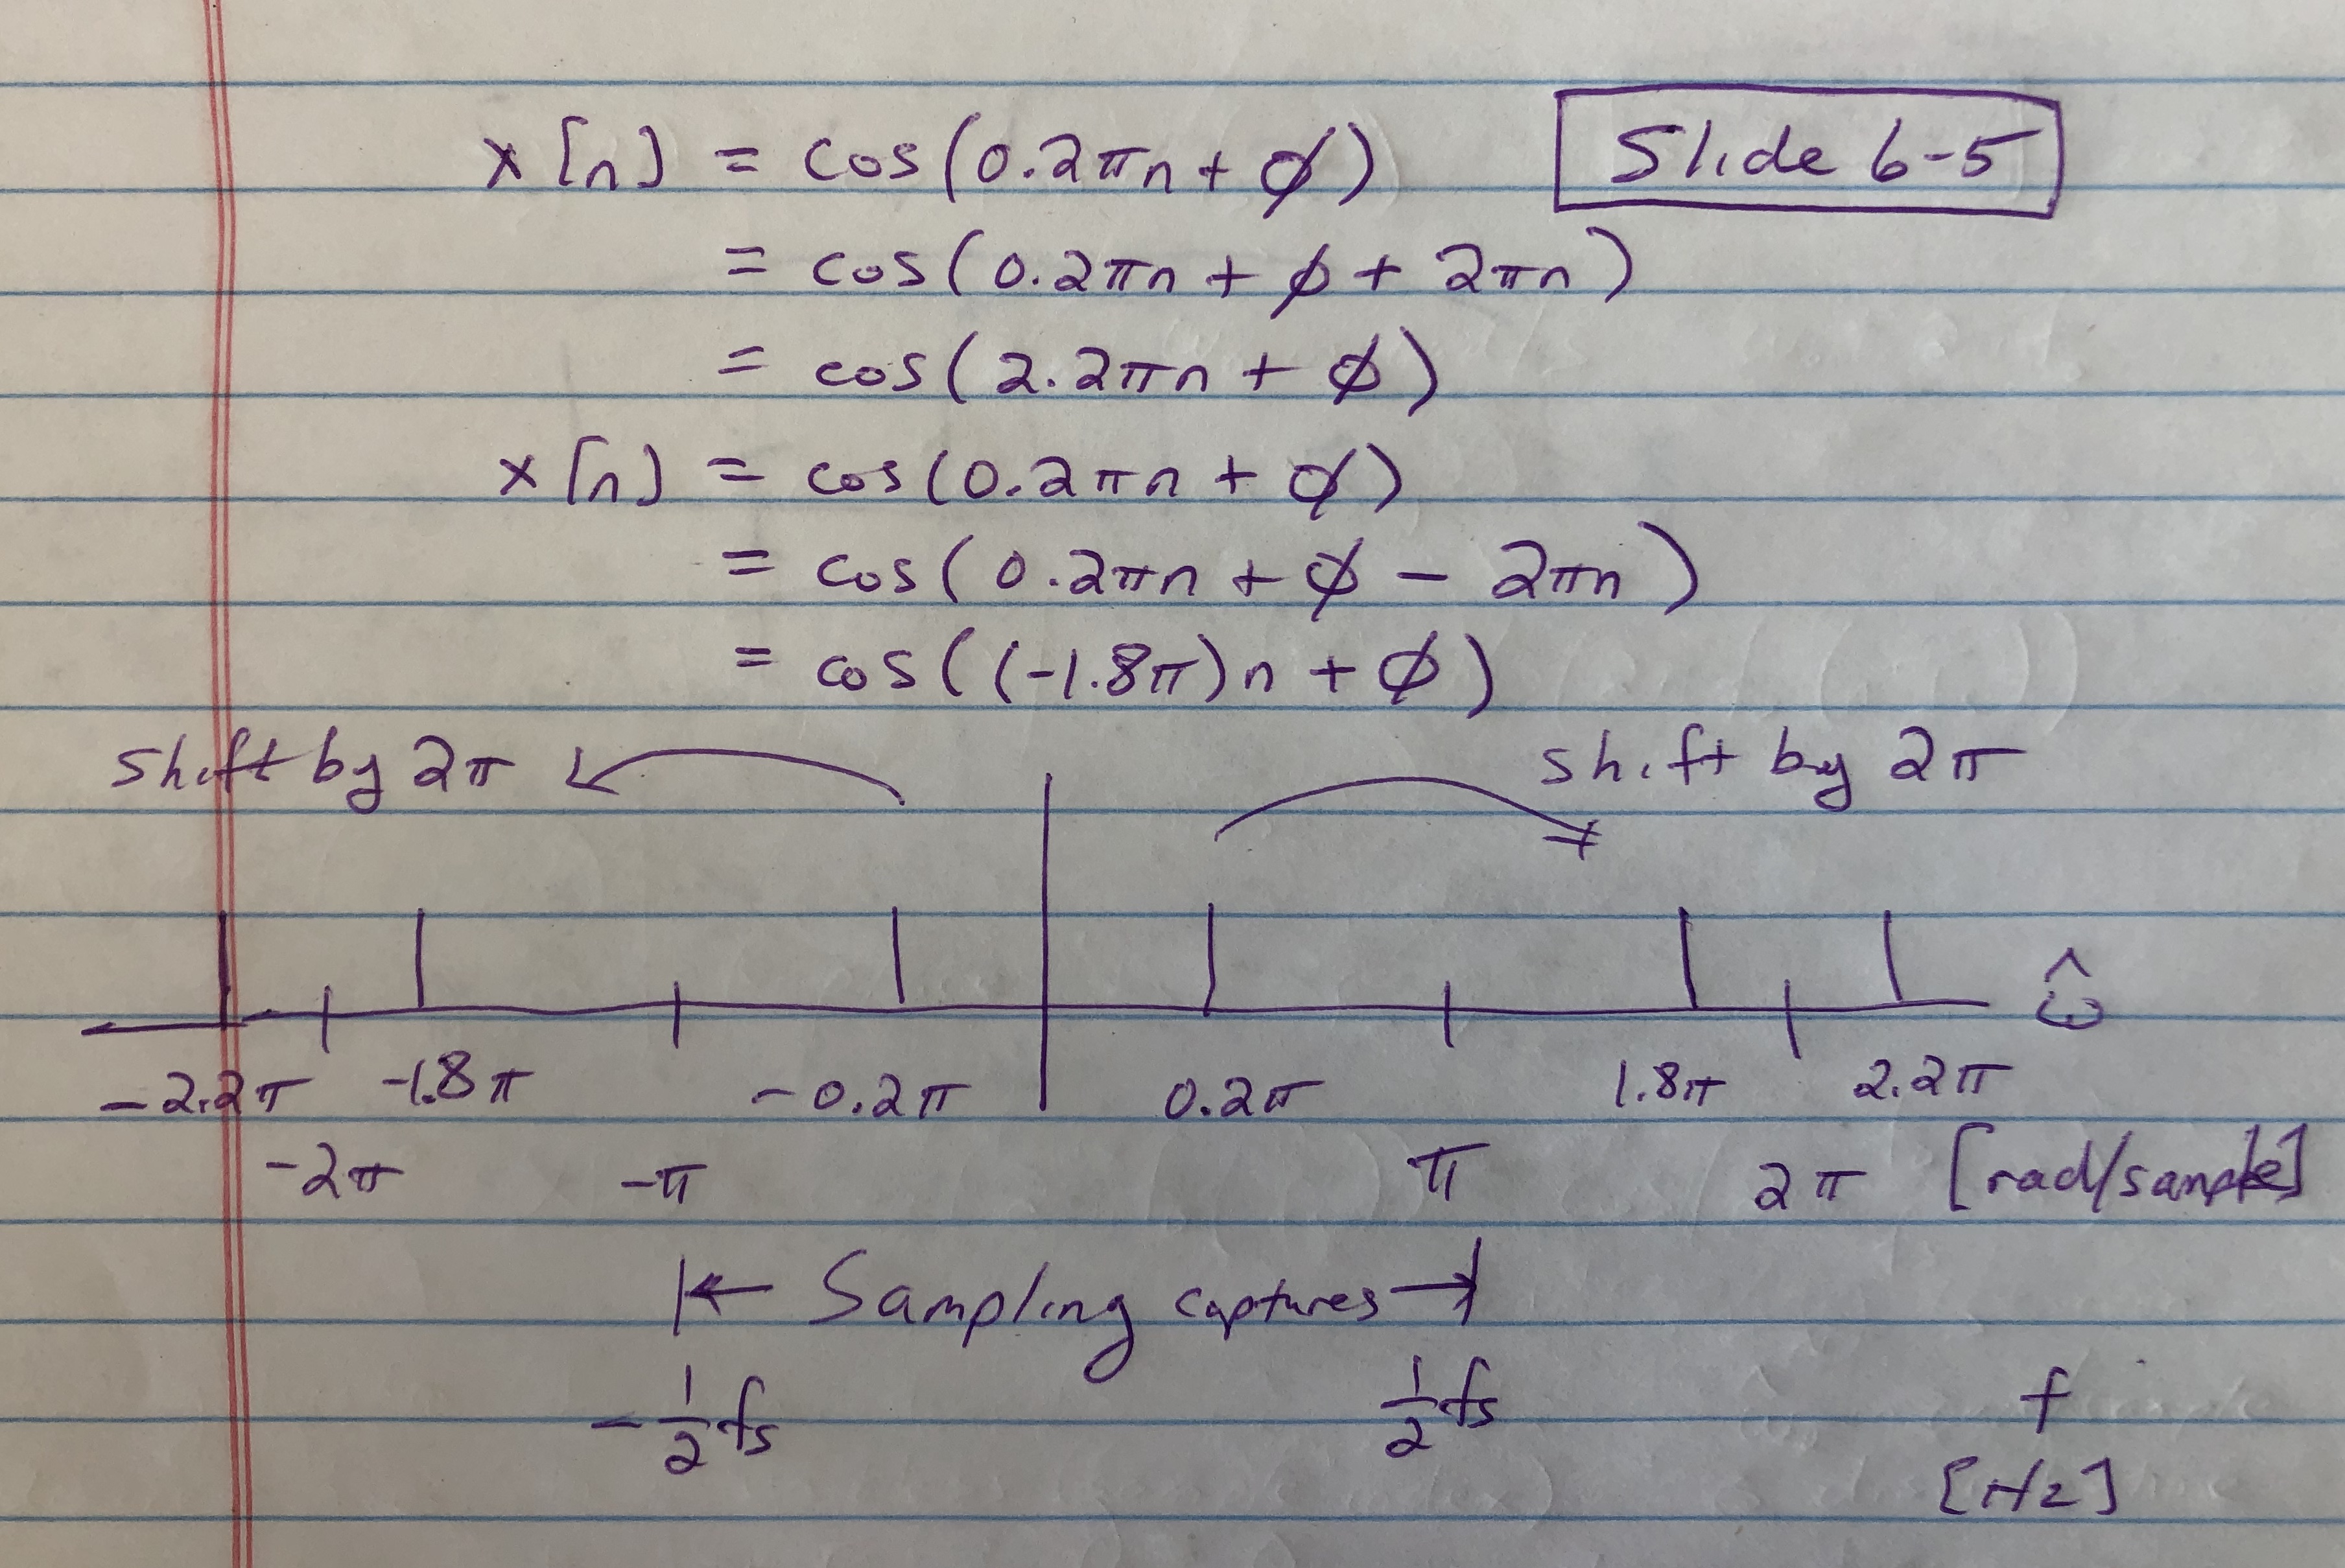 x[n] = cos(0.2πn + φ)
Slide 6-5
= cos(0.2πn + φ + 2πn)
= cos(2.2πn + φ)
x[n] = cos(0.2πn + φ)
= cos(0.2πn + φ - 2πn)
= cos((-1.8π)n + φ)
shift by 2π
shift by 2π
ω̂
-2.2π -1.8π -0.2π 0.2π 1.8π 2.2π
-2π -π π 2π [rad/sample]
|← Sampling captures →|
-1/2 fs 1/2 fs f
[Hz]